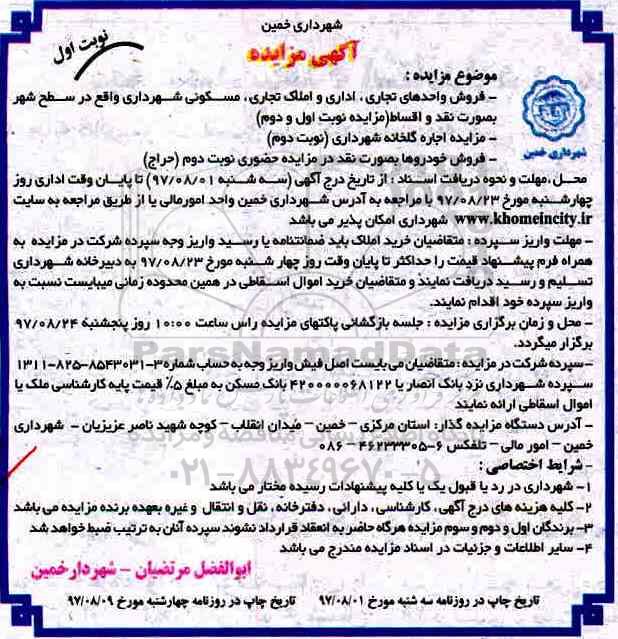 شهرداری خمین
آگهی مزایده
نوبت اول
شهرداری خمین
موضوع مزایده :
- فروش واحدهای تجاری ، اداری و املاک تجاری ، مسکونی شهرداری واقع در سطح شهر
بصورت نقد و اقساط(مزایده نوبت اول و دوم)
- مزایده اجاره گلخانه شهرداری (نوبت دوم)
- فروش خودروها بصورت نقد در مزایده حضوری نوبت دوم (حراج)
محل ،مهلت و نحوه دریافت اسناد : از تاریخ درج آگهی (سه شنبه ۹۷/۰۸/۰۱) تا پایان وقت اداری روز
چهارشنبه مورخ ۹۷/۰۸/۲۳ با مراجعه به آدرس شهرداری خمین واحد امورمالی یا از طریق مراجعه به سایت
www.khomeincity.ir شهرداری امکان پذیر می باشد
- مهلت واریز سپرده : متقاضیان خرید املاک باید ضمانتنامه یا رسید واریز وجه سپرده شرکت در مزایده به
همراه فرم پیشنهاد قیمت را حداکثر تا پایان وقت روز چهار شنبه مورخ ۹۷/۰۸/۲۳ به دبیرخانه شهرداری
تسلیم و رسید دریافت نمایند و متقاضیان خرید اموال اسقاطی در همین محدوده زمانی میبایست نسبت به
واریز سپرده خود اقدام نمایند.
- محل و زمان برگزاری مزایده : جلسه بازگشائی پاکتهای مزایده راس ساعت ۱۰:۰۰ روز پنجشنبه ۹۷/۰۸/۲۴
برگزار میگردد.
- سپرده شرکت در مزایده : متقاضیان می بایست اصل فیش واریز وجه به حساب شماره ۳-۸۵۴۳۰۳۱-۸۲۵-۱۳۱۱
سپرده شهرداری نزد بانک انصار یا ۴۲۰۰۰۰۰۶۸۱۲۲ بانک مسکن به مبلغ ۵٪ قیمت پایه کارشناسی ملک یا
اموال اسقاطی ارائه نمایند
- آدرس دستگاه مزایده گذار: استان مرکزی – خمین – میدان انقلاب – کوچه شهید ناصر عزیزیان – شهرداری
خمین – امور مالی – تلفکس ۶-۴۶۲۳۳۳۰۵ – ۰۸۶
- شرایط اختصاصی :
۱- شهرداری در رد یا قبول یک یا کلیه پیشنهادات رسیده مختار می باشد
۲- کلیه هزینه های درج آگهی، کارشناسی ، دارائی ، دفترخانه ، نقل و انتقال و غیره بعهده برنده مزایده می باشد
۳- برندگان اول و دوم و سوم مزایده هرگاه حاضر به انعقاد قرارداد نشوند سپرده آنان به ترتیب ضبط خواهد شد
۴- سایر اطلاعات و جزئیات در اسناد مزایده مندرج می باشد
ابوالفضل مرتضیان - شهردارخمین
تاریخ چاپ در روزنامه سه شنبه مورخ ۹۷/۰۸/۰۱ تاریخ چاپ در روزنامه چهارشنبه مورخ ۹۷/۰۸/۰۹
ParsNamadData
۰۲۱-۸۸۳۴۹۶۷۰-۵